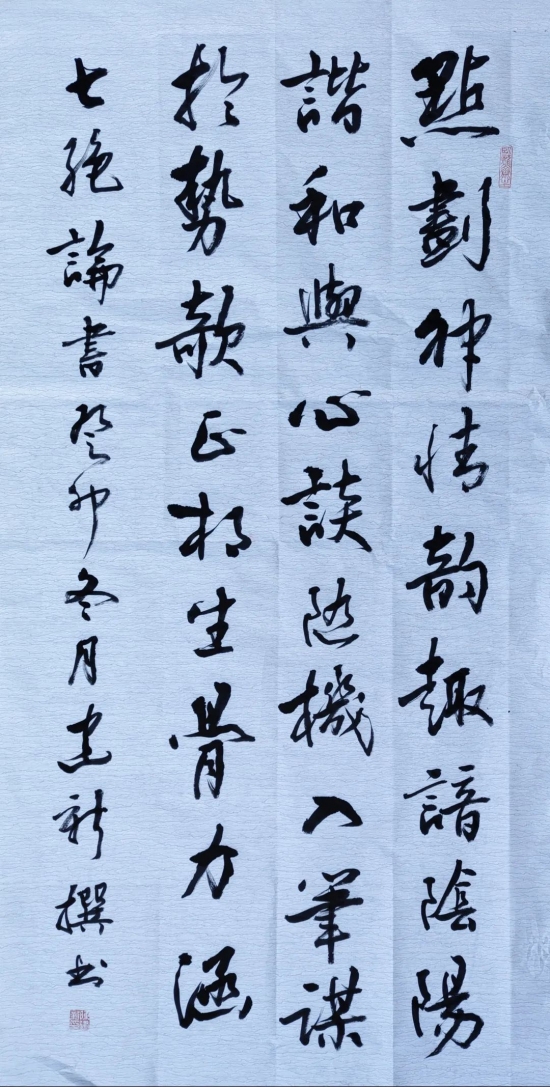 點劃神情韵趣諳陰陽
諧和與心談随機入筆謀
於勢欹正相生骨力涵
七絕論書癸卯冬月建新撰书